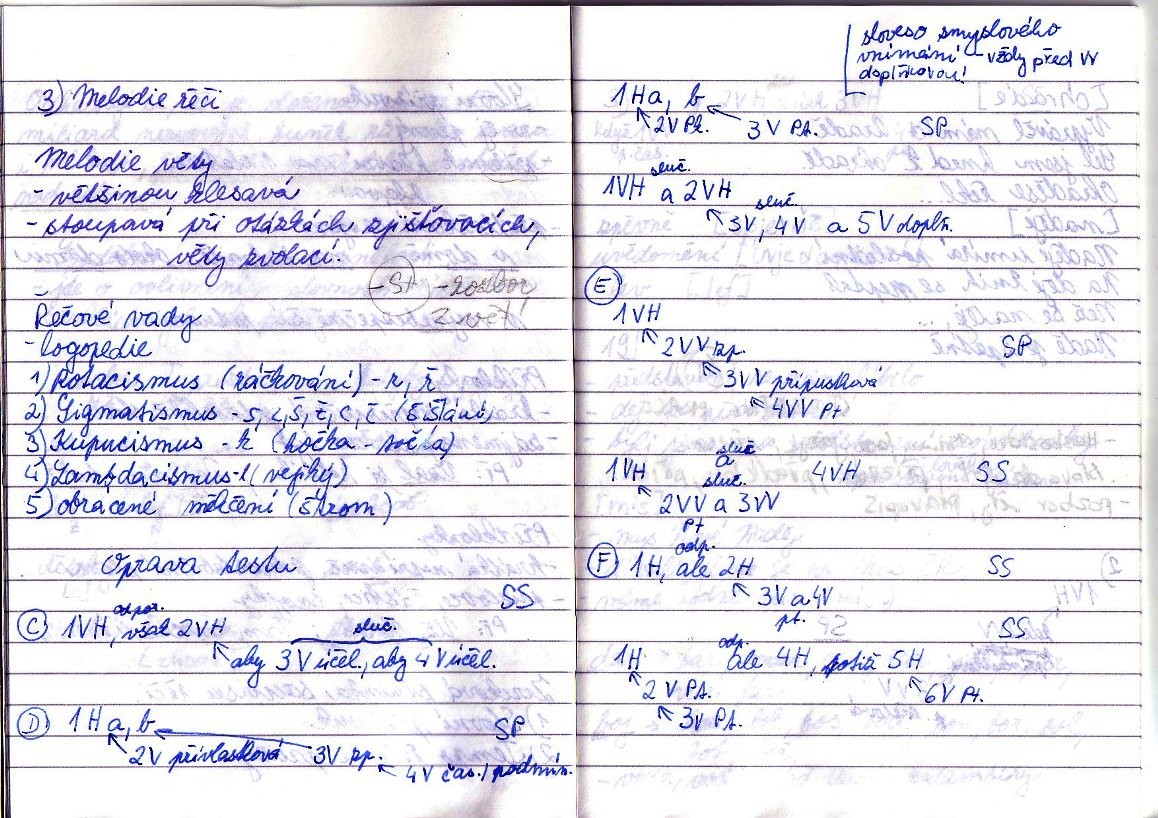 3) Melodie řeči
Melodie věty
- většinou klesavá
- stoupavá při otázkách zjišťovacích,
věty zvolací.
- rozbor
2 vět!
Řečové vady
- logopedie
1) Rotacismus (ráčkování) - r, ř
2) Sigmatismus - s, z, š, ž, c, č (šišlání)
3) Kupucismus - k (kočka - točka)
4) Lambdacismus - l (vejký)
5) obrácené měkčení (štrom)
Oprava testu
SS
odpor.
C 1VH, však 2VH
sluč.
aby 3V účel., aby 4V účel.
D 1Ha, b SP
2V přívlastková 3V zp.
4V čas./podmín.
sloveso smyslového
vnímání - vždy před VV
doplňkovou!
1Ha, b
2V Př. 3V Př. SP
sluč.
1VH a 2VH
sluč.
3V, 4V a 5V doplň.
E
1VH
2VV zp. SP
3VV přípustková
4VV Př
sluč.
1VH a 4VH SS
sluč.
2VV a 3VV
Př
odp.
F 1H, ale 2H SS
3V a 4V
př.
SS
odp.
1H ale 4H, totiž 5H
2V Př. 6V Př.
3V Př.